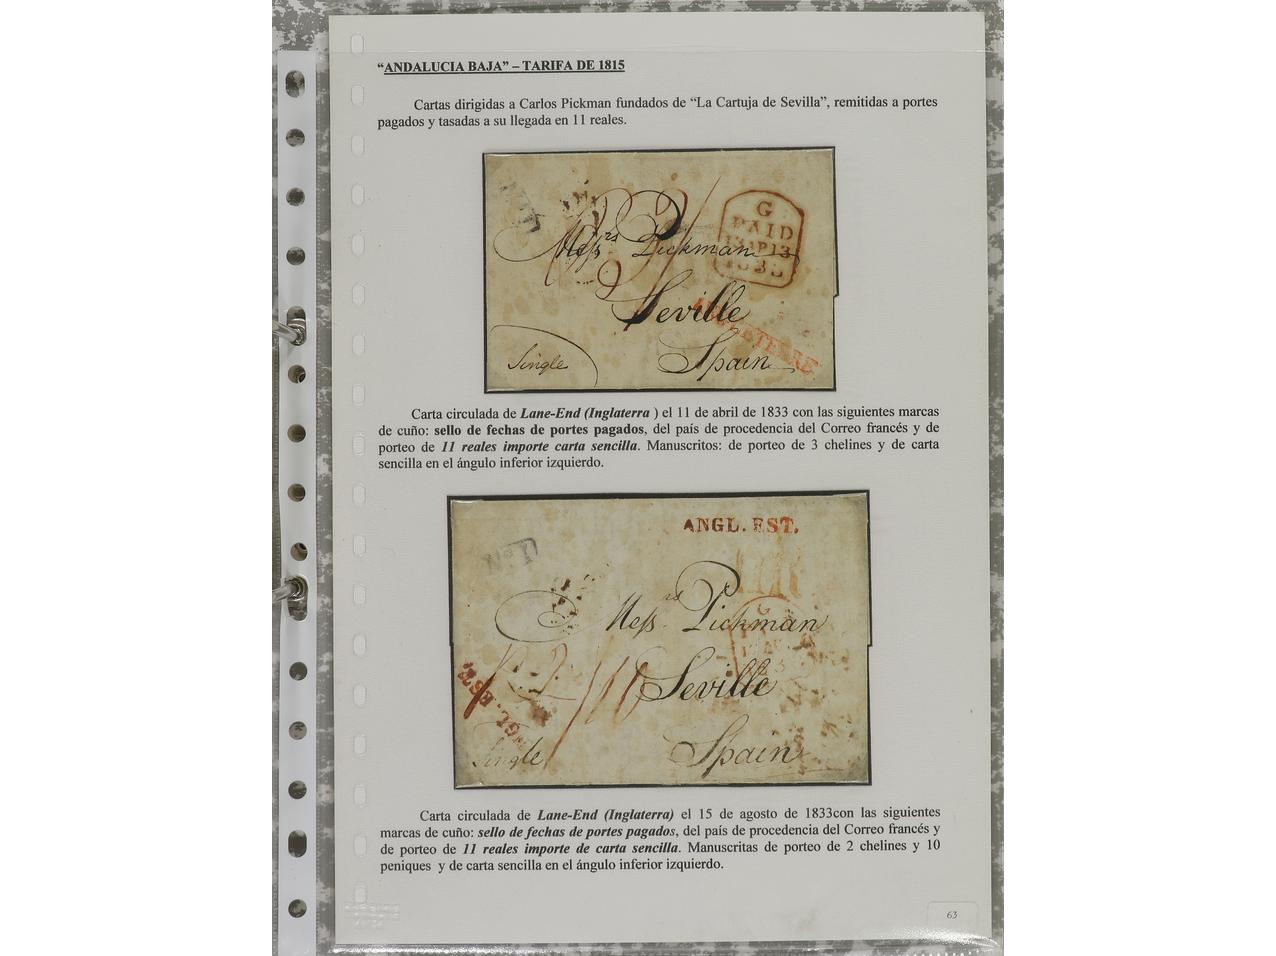 “ANDALUCIA BAJA” – TARIFA DE 1815
Cartas dirigidas a Carlos Pickman fundados de “La Cartuja de Sevilla”, remitidas a portes
pagados y tasadas a su llegada en 11 reales.
G
PAID
1833
Messrs Pickman
Seville
ANGLETERRE
Spain
Single
Carta circulada de Lane-End (Inglaterra ) el 11 de abril de 1833 con las siguientes marcas
de cuño: sello de fechas de portes pagados, del país de procedencia del Correo francés y de
porteo de 11 reales importe carta sencilla. Manuscritos: de porteo de 3 chelines y de carta
sencilla en el ángulo inferior izquierdo.
ANGL. EST.
Messrs Pickman
Seville
ANGL. EST.
Single
Spain
Carta circulada de Lane-End (Inglaterra) el 15 de agosto de 1833con las siguientes
marcas de cuño: sello de fechas de portes pagados, del país de procedencia del Correo francés y
de porteo de 11 reales importe de carta sencilla. Manuscritas de porteo de 2 chelines y 10
peniques y de carta sencilla en el ángulo inferior izquierdo.
63